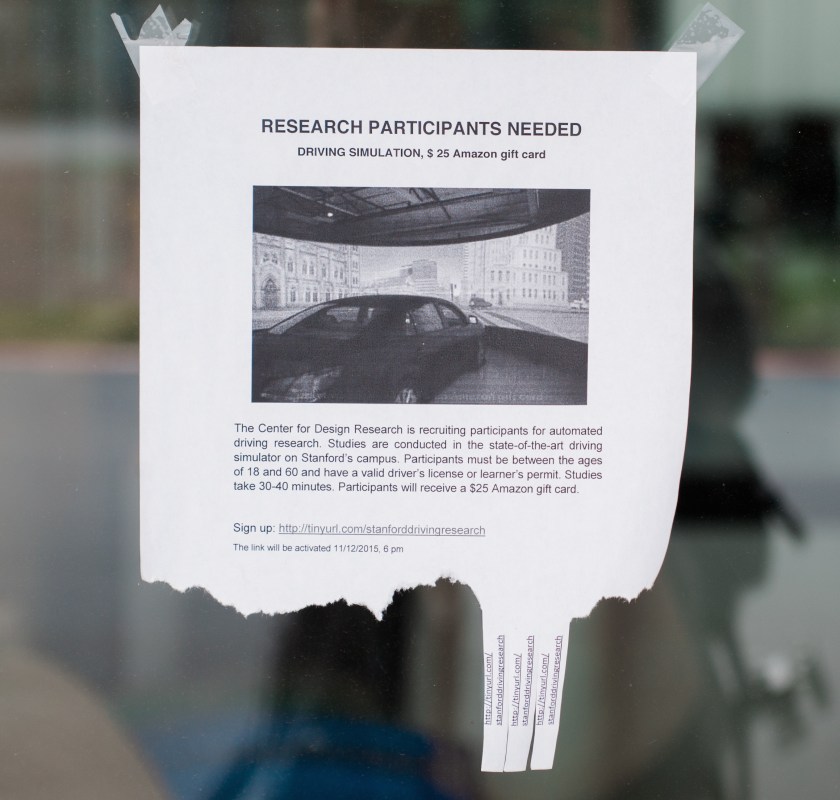 RESEARCH PARTICIPANTS NEEDED
DRIVING SIMULATION, $ 25 Amazon gift card
The Center for Design Research is recruiting participants for automated
driving research. Studies are conducted in the state-of-the-art driving
simulator on Stanford's campus. Participants must be between the ages
of 18 and 60 and have a valid driver's license or learner's permit. Studies
take 30-40 minutes. Participants will receive a $25 Amazon gift card.
Sign up: http://tinyurl.com/stanforddrivingresearch
The link will be activated 11/12/2015, 6 pm
http://tinyurl.com/
stanforddrivingresearch
http://tinyurl.com/
stanforddrivingresearch
http://tinyurl.com/
stanforddrivingresearch